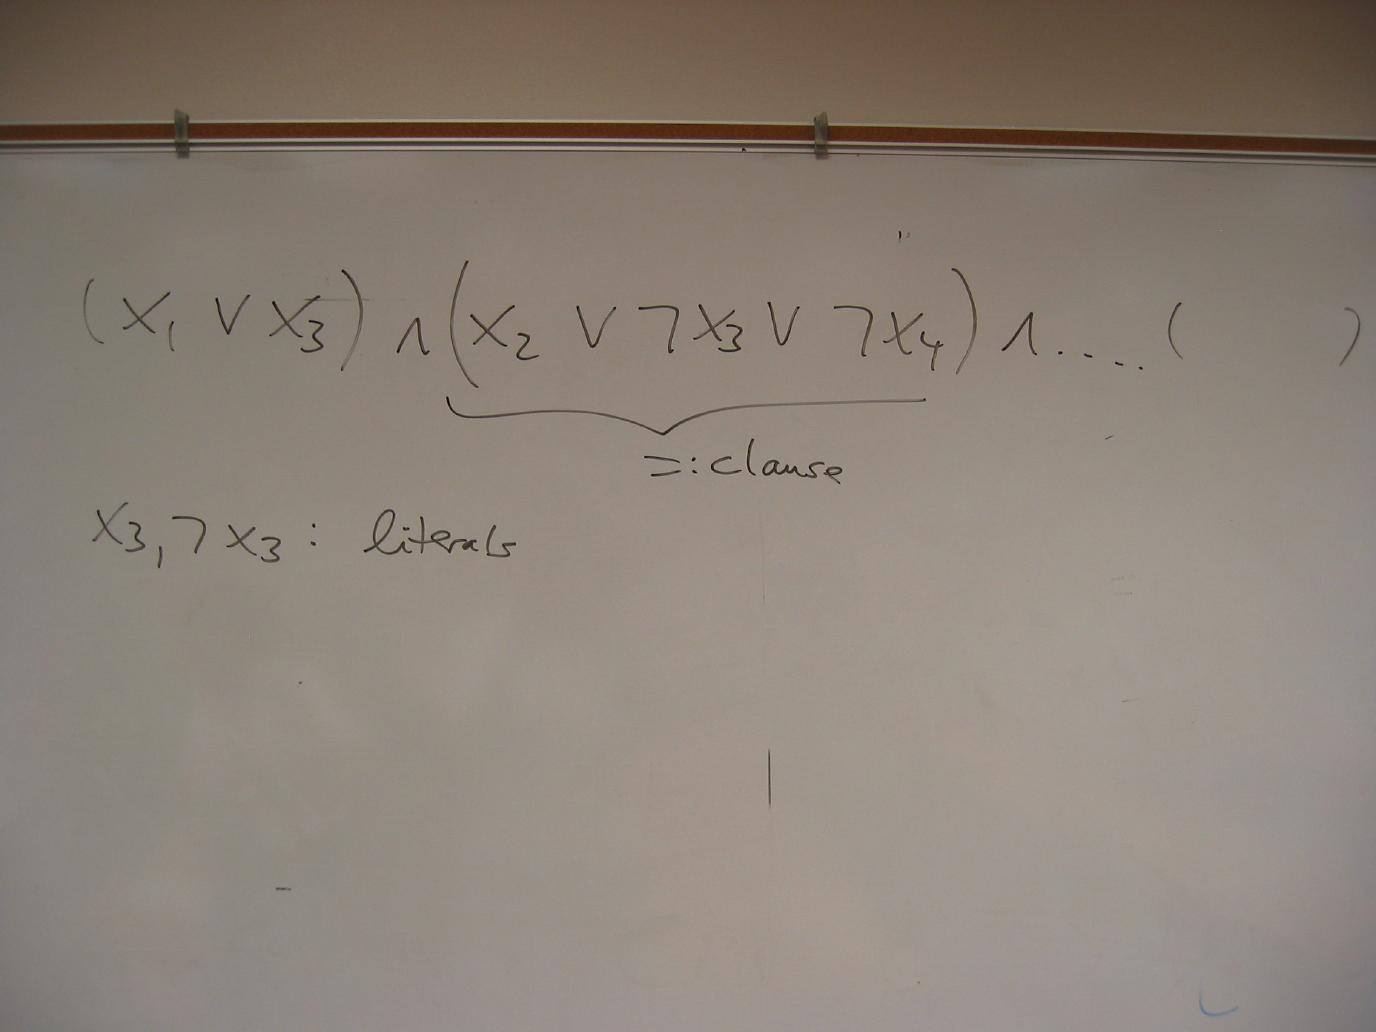 (x₁ ∨ x₃) ∧ (x₂ ∨ ¬x₃ ∨ ¬x₄) ∧ .... ( )
=: clause
x₃, ¬x₃ : literals